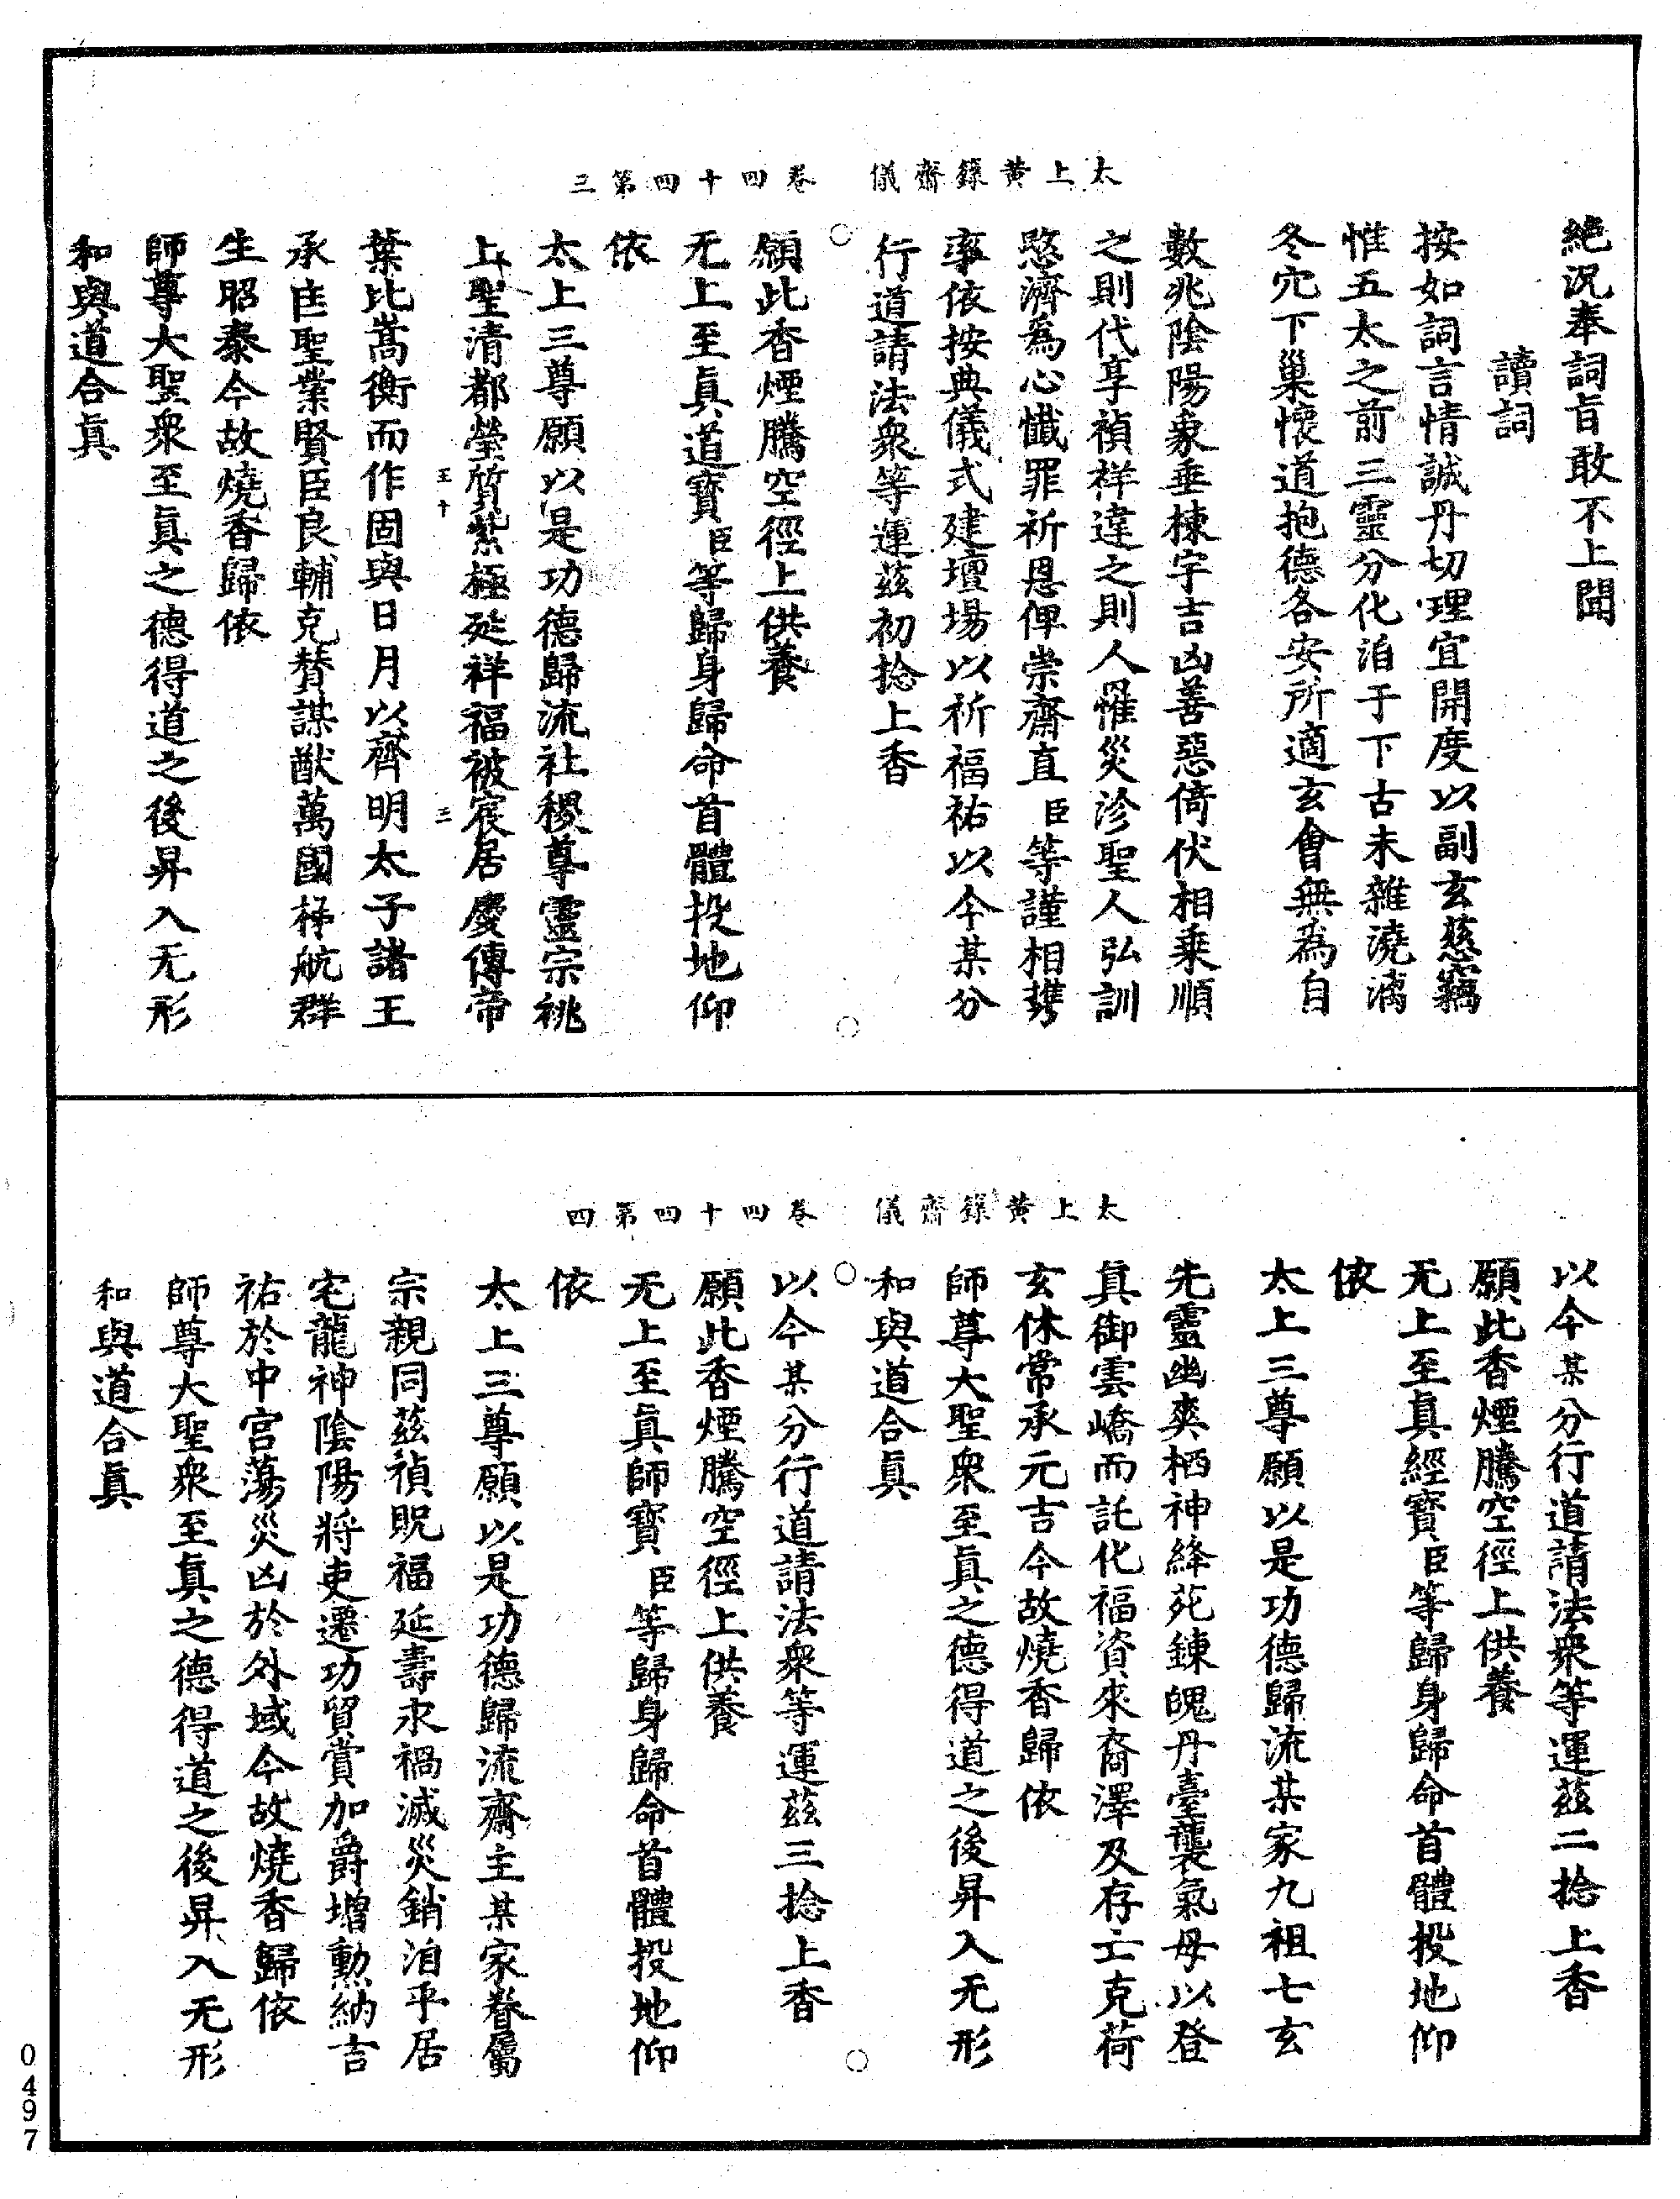 太上黃籙齋儀　卷四十四第三
絕況奉詞旨敢不上聞
讀詞
按如詞言情誠丹切理宜開度以副玄慈竊
惟五太之前三靈分化洎于下古未雜澆漓
冬穴下巢懷道抱德各安所適玄會無為自
數兆陰陽象垂棟宇吉凶善惡倚伏相乘順
之則代享禎祥違之則人罹災沴聖人弘訓
愍濟為心懺罪祈恩俾崇齋直臣等謹相携
率依按典儀式建壇場以祈福祐以今某分
行道請法眾等運茲初捻上香
願此香煙騰空徑上供養
无上至真道寶臣等歸身歸命首體投地仰
依
太上三尊願以是功德歸流社稷尊靈宗祧
上聖清都瑩質紫極延祥福被宸居慶傳帝
葉比嵩衡而作固與日月以齊明太子諸王
承匡聖業賢臣良輔克贊謀猷萬國梯航群
生昭泰今故燒香歸依
師尊大聖眾至真之德得道之後昇入无形
和與道合真
王十
三
太上黃籙齋儀　卷四十四第四
以今某分行道請法眾等運茲二捻上香
願此香煙騰空徑上供養
无上至真經寶臣等歸身歸命首體投地仰
依
太上三尊願以是功德歸流某家九祖七玄
先靈幽爽栖神絳苑鍊魄丹臺襲氣母以登
真御雲嶠而託化福資來裔澤及存亡克荷
玄休常承元吉今故燒香歸依
師尊大聖眾至真之德得道之後昇入无形
和與道合真
以今某分行道請法眾等運茲三捻上香
願此香煙騰空徑上供養
无上至真師寶臣等歸身歸命首體投地仰
依
太上三尊願以是功德歸流齋主某家眷屬
宗親同茲禎貺福延壽永禍滅災銷洎平居
宅龍神陰陽將吏遷功貿賞加爵增勳納吉
祐於中宮蕩災凶於外域今故燒香歸依
師尊大聖眾至真之德得道之後昇入无形
和與道合真
0497